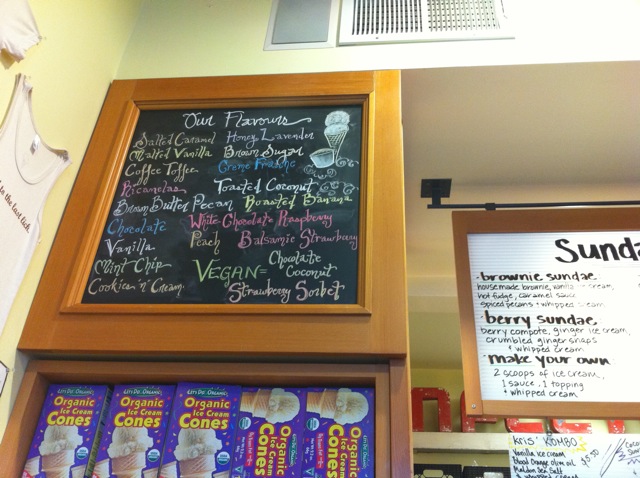 Our Flavours
Salted Caramel Honey Lavender
Malted Vanilla Brown Sugar
Coffee Toffee Creme Fraiche
Ricanelas Toasted Coconut
Brown Butter Pecan Roasted Banana
Chocolate White Chocolate Raspberry
Vanilla Peach Balsamic Strawberry
Mint Chip VEGAN= Chocolate Coconut
Cookies 'n' Cream Strawberry Sorbet
Sunda
• brownie sundae
housemade brownie, vanilla ice cream,
hot fudge, caramel sauce
spiced pecans + whipped cream
• berry sundae
berry compote, ginger ice cream,
crumbled ginger snaps
+ whipped cream
• make your own
2 scoops of ice cream,
1 sauce, 1 topping
+ whipped cream
LET'S DO...ORGANIC
Organic
Ice Cream
Cones
LET'S DO...ORGANIC
Organic
Ice Cream
Cones
LET'S DO...ORGANIC
Organic
Ice Cream
Cones
Organic
Ice Cream
Cones
Organic
Ice Cream
Cones
Kris' KOMBO
Vanilla ice cream $5.50
Blood Orange olive oil
Maldon Sea Salt
to the last lick